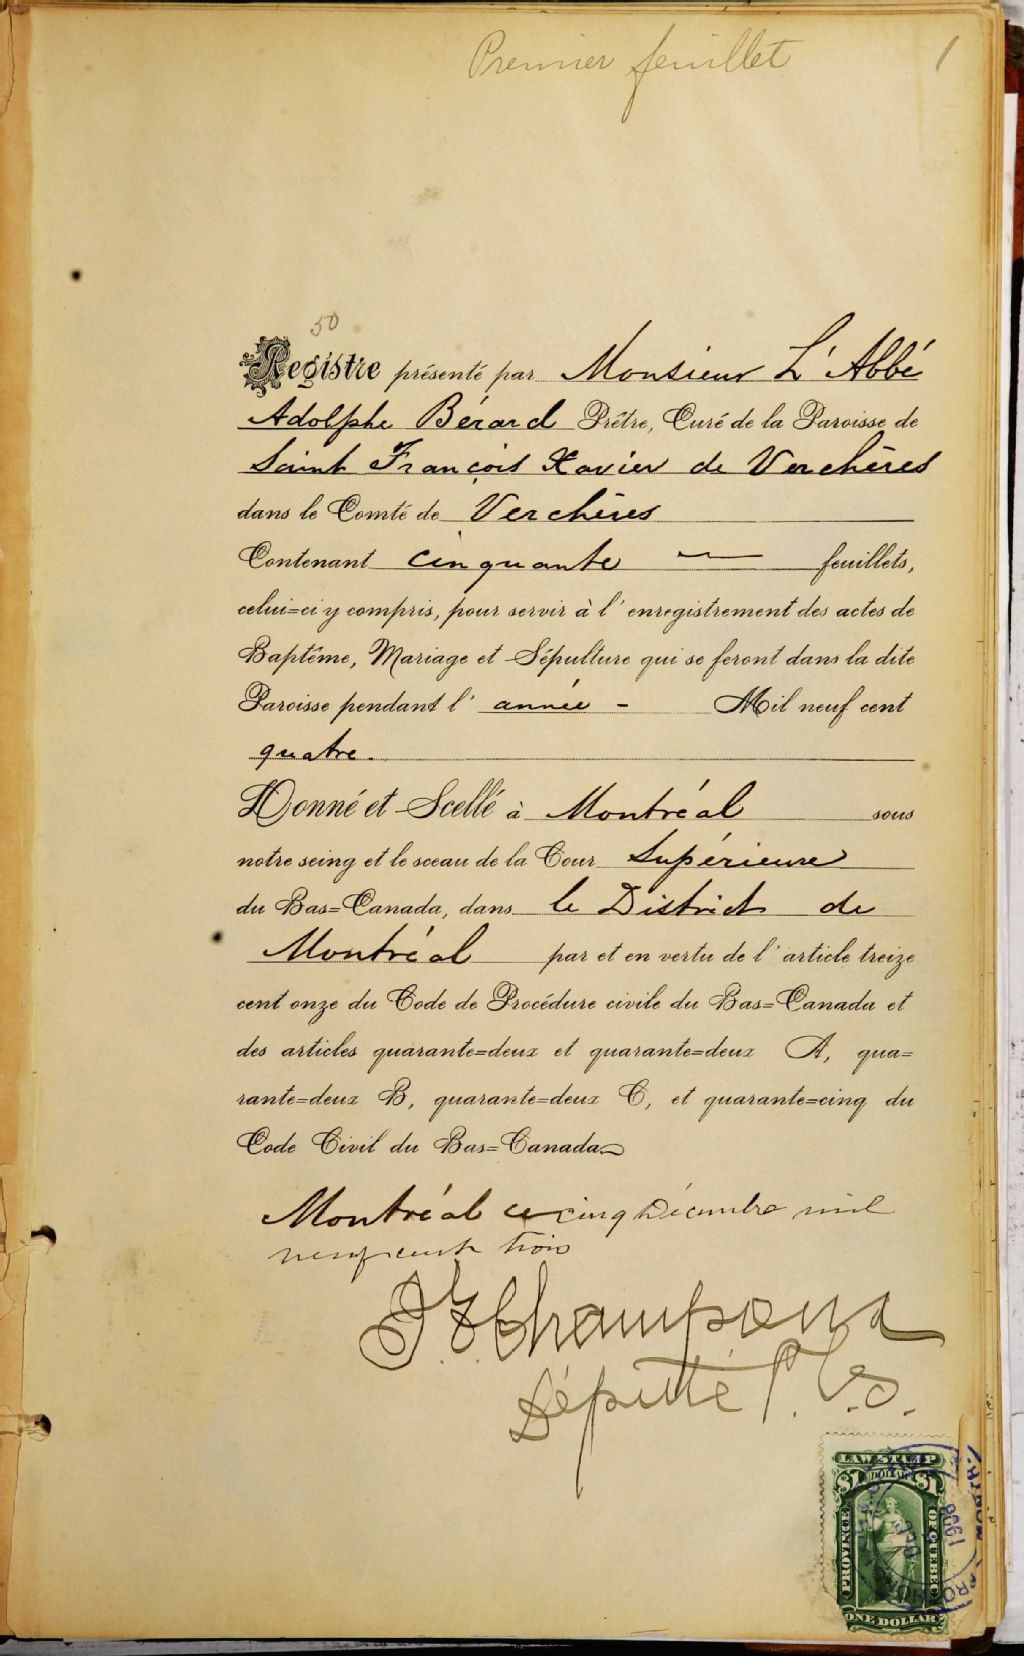 Premier feuillet
1
50
Registre présenté par Monsieur L'Abbé
Adolphe Bérard Prêtre, Curé de la Paroisse de
Saint François Xavier de Verchères
dans le Comté de Verchères
Contenant cinquante — feuillets,
celui=ci y compris, pour servir à l'enregistrement des actes de
Baptême, Mariage et Sépulture qui se feront dans la dite
Paroisse pendant l'année - Mil neuf cent
quatre.
Donné et Scellé à Montréal sous
notre seing et le sceau de la Cour Supérieure
du Bas=Canada, dans le District de
Montréal par et en vertu de l'article treize
cent onze du Code de Procédure civile du Bas=Canada et
des articles quarante=deux et quarante=deux A, qua=
rante=deux B, quarante=deux C, et quarante=cinq du
Code Civil du Bas=Canada
Montréal ce cinq Décembre mil
neuf cent trois
Député P.C.S.
LAW STAMP
$1 DOLLAR $1
PROVINCE OF QUEBEC
ONE DOLLAR